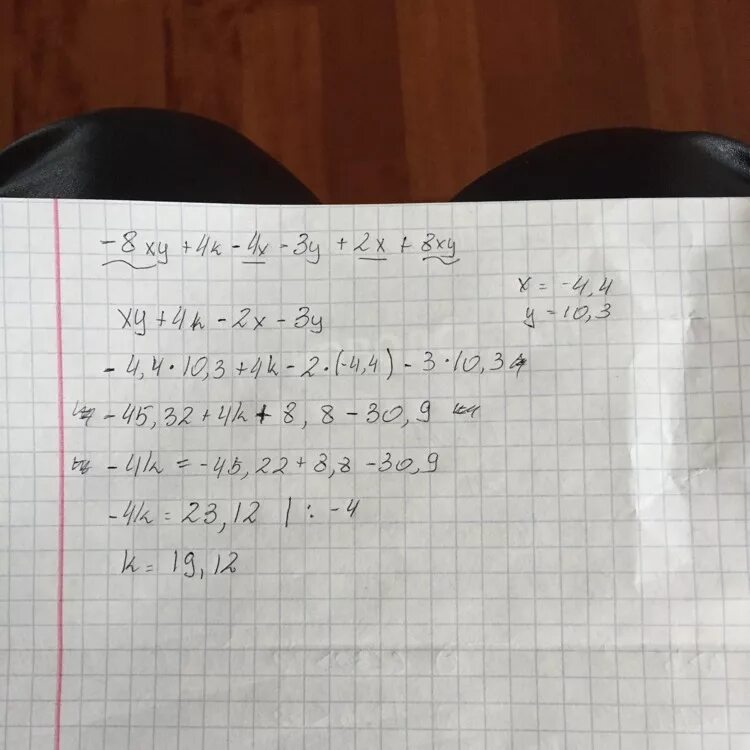 -8xy + 4k - 4x - 3y + 2x + 8xy
x = -4,4
y = 10,3
xy + 4k - 2x - 3y
- 4,4 · 10,3 + 4k - 2 · (-4,4) - 3 · 10,3
- 45,32 + 4k + 8,8 - 30,9
- 4k = -45,22 + 8,8 - 30,9
-4k = 23,12 | : -4
k = 19,12